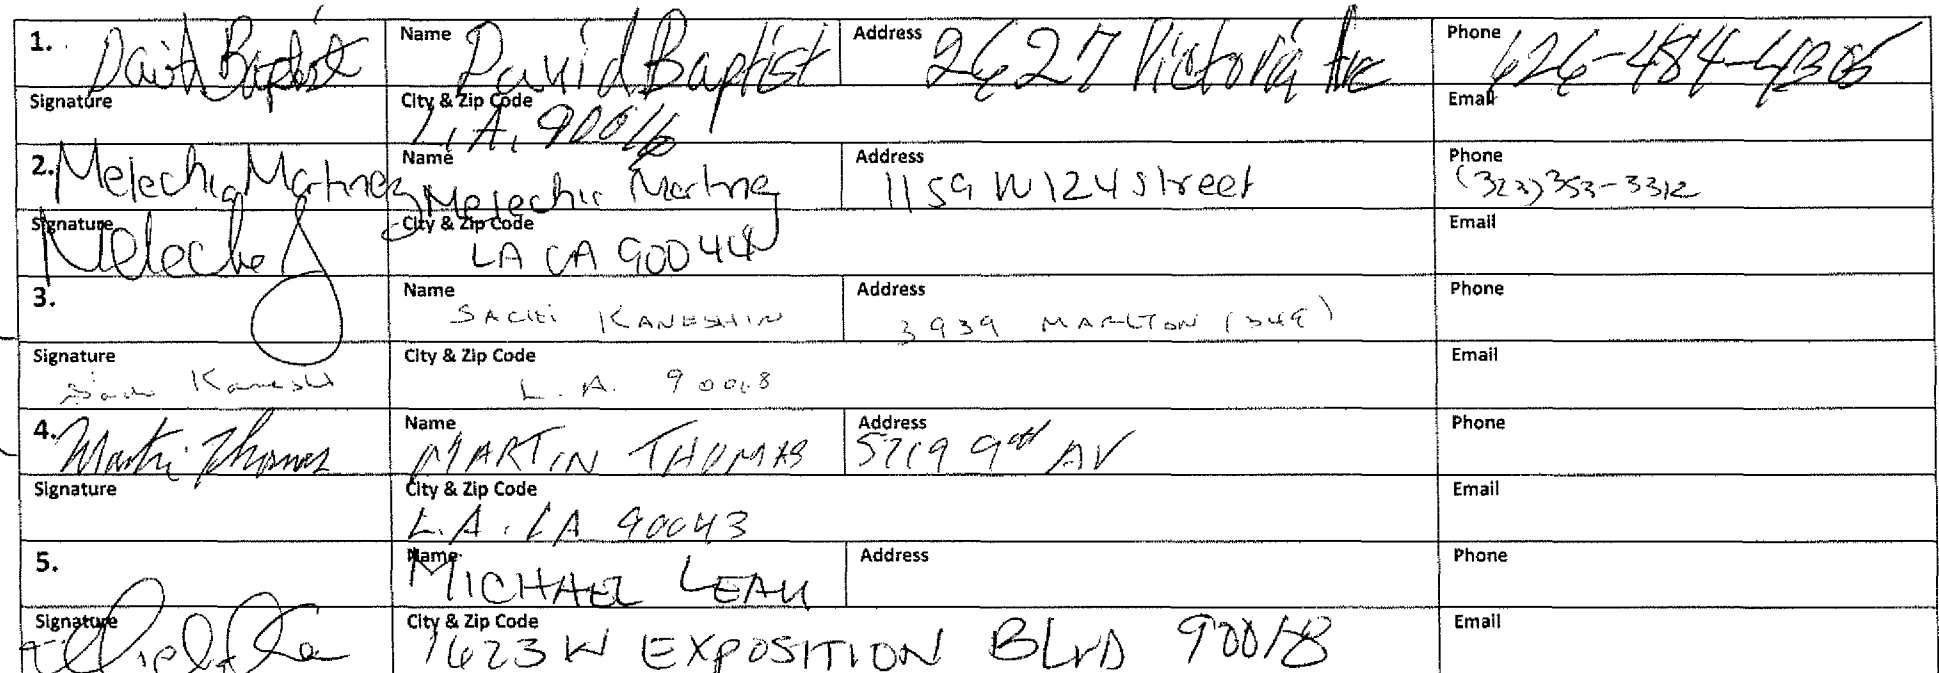 1. David Baptist Name David Baptist Address 2627 Victoria Ave Phone 626-484-4305
Signature City & Zip Code L.A. 90016 Email
2. Melechia Martinez Name Melechia Martinez Address 1159 W 124 Street Phone (323) 353-3312
Signature City & Zip Code LA CA 90044 Email
3. Name KANESHIN Address 3939 MARLTON Phone
Signature City & Zip Code L.A. 90008 Email
4. Martin Thomas Name MARTIN THOMAS Address 9th AV Phone
Signature City & Zip Code L.A. CA 90043 Email
5. Name MICHAEL Address Phone
Signature City & Zip Code 1623 W EXPOSITION BLVD 90018 Email